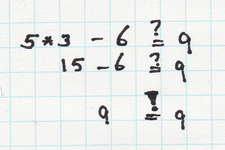 5*3 - 6 ?= 9
15 - 6 ?= 9
9 != 9